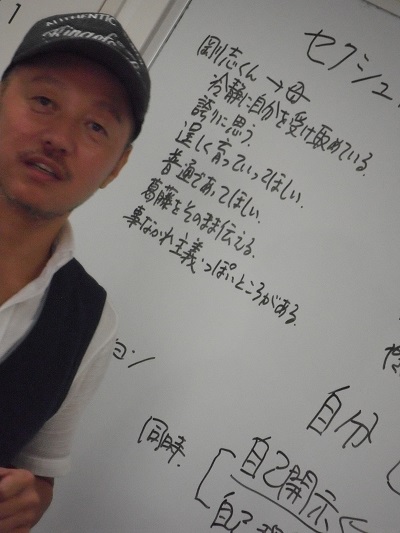 AUTHENTIC
セクシュ
剛志くん→母
冷静に自分を受け取めている。
誇りに思う。
逞しく育っていってほしい。
普通であってほしい。
葛藤をそのまま伝える。
事なかれ主義っぽいところがある。
ョン
自分
同時
自己開示
自己